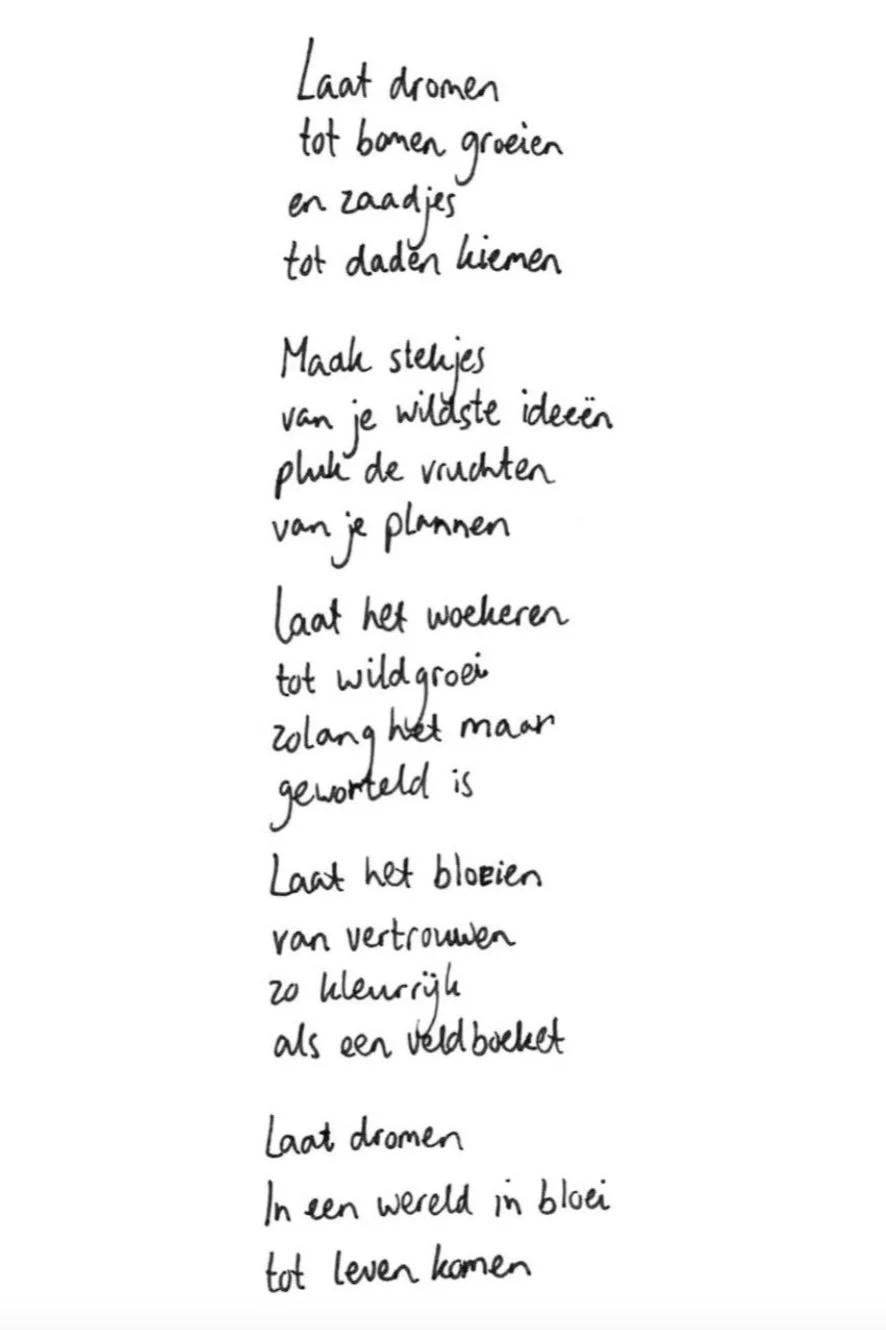 Laat dromen
tot bomen groeien
en zaadjes
tot daden kiemen
Maak stekjes
van je wildste ideeën
pluk de vruchten
van je plannen
Laat het woekeren
tot wildgroei
zolang het maar
geworteld is
Laat het bloeien
van vertrouwen
zo kleurrijk
als een veldboeket
Laat dromen
In een wereld in bloei
tot leven komen